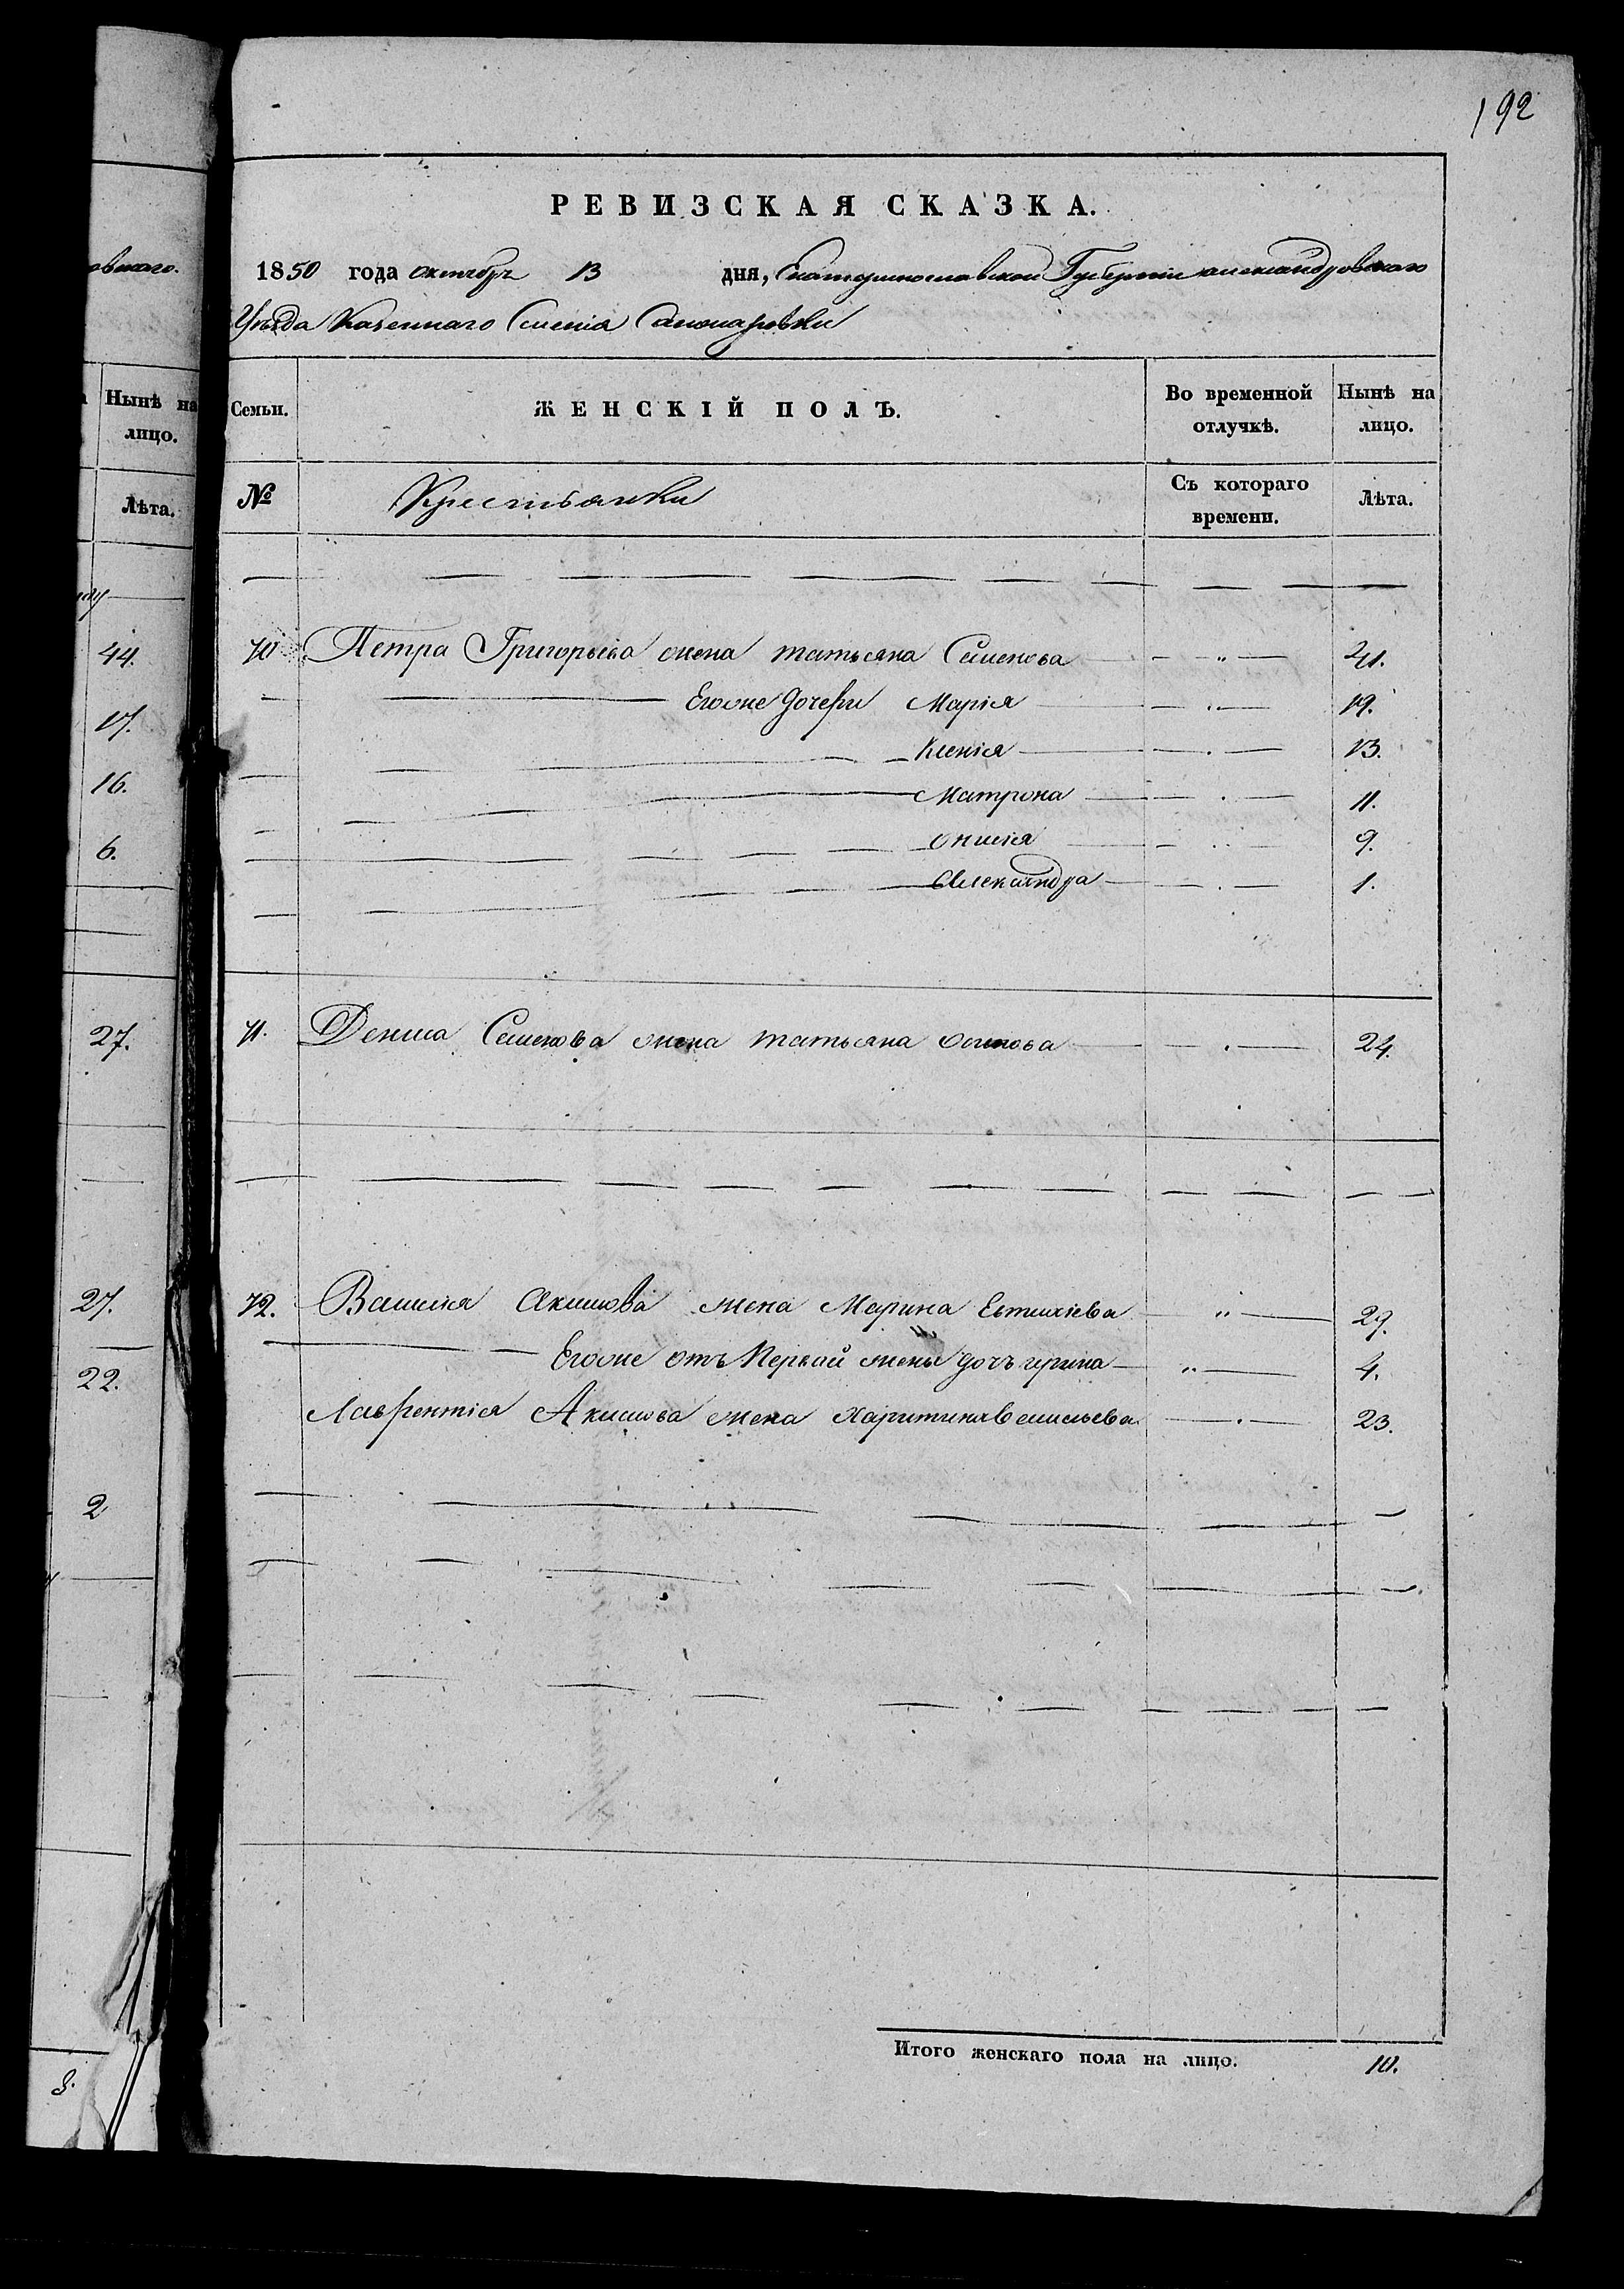 192
РЕВИЗСКАЯ СКАЗКА.
1850 года октября 13 дня, Екатеринославской Губерніи александровскаго
Уѣзда Казеннаго Селенія
Семьи. ЖЕНСКІЙ ПОЛЪ. Во временной отлучкѣ. Нынѣ на лицо.
№ Крестьянки Съ котораго времени. Лѣта.
70 Петра Григорьева жена татьяна Семенова 41.
Егоже дочери Марія 19.
Ксенія 13.
Матрона 11.
онисія 9.
Александра 1.
71. Дениса Семенова жена татьяна осипова 24.
72. Василія Акимова жена Марина Евтихіева 29.
Егоже отъ Первой жены дочь ирина 4.
Лаврентія Акимова жена Харитина Васильева 23.
Итого женскаго пола на лицо. 10.
овскаго.
Нынѣ на
лицо.
Лѣта.
44.
17.
16.
6.
27.
27.
22.
2
8.